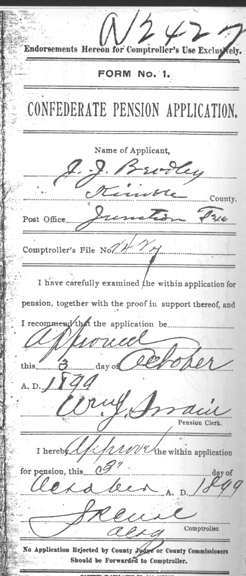 N2427
Endorsements Hereon for Comptroller's Use Exclusively.
FORM No. 1.
CONFEDERATE PENSION APPLICATION.
Name of Applicant,
J. J. Bradley
Kimble County.
Post Office Junction
Comptroller's File No.
I have carefully examined the within application for
pension, together with the proof in support thereof, and
I recommend that the application be
Approved
this 3 day of October
A. D. 1899
Wm. J. Swain
Pension Clerk.
I hereby Approve the within application
for pension, this 3" day of
October A. D. 1899
Comptroller.
No Application Rejected by County Judge or County Commissioners
Should be Forwarded to Comptroller.